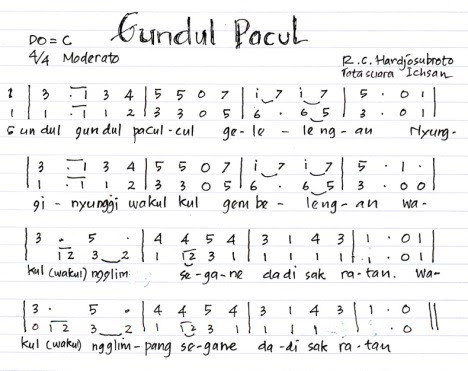 Gundul Pacul
DO = C
4/4 Moderato
R.C. Hardjosubroto
Tata suara Ichsan
1 | 3 · 1 3 4 | 5 5 0 7 | i 7 i 7 | 5 · 0 1 |
1 | 1 · 1 1 2 | 3 3 0 5 | 6 · 6 5 | 3 · 0 1 |
Gundul gundul pacul-cul ge-le-leng-an Nyung-
| 3 · 1 3 4 | 5 5 0 7 | i 7 i 7 | 5 · 1 · |
| 1 · 1 1 2 | 3 3 0 5 | 6 · 6 5 | 3 · 0 0 |
gi-nyunggi wakul kul gembe-leng-an wa-
| 3 · 5 · | 4 4 5 4 | 3 1 4 3 | 1 · 0 1 |
1 2 3 2 | 1 12 3 1 | 1 1 1 1 | 1 · 0 1 |
kul (wakul) ngglim se-ga-ne dadi sak ra-tan. Wa-
| 3 · 5 · | 4 4 5 4 | 3 1 4 3 | 1 · 0 ||
| 0 12 3 2 | 1 12 3 1 | 1 1 1 1 | · 0 ||
kul (wakul) ngglim-pang se-gane da-di sak ra-tan